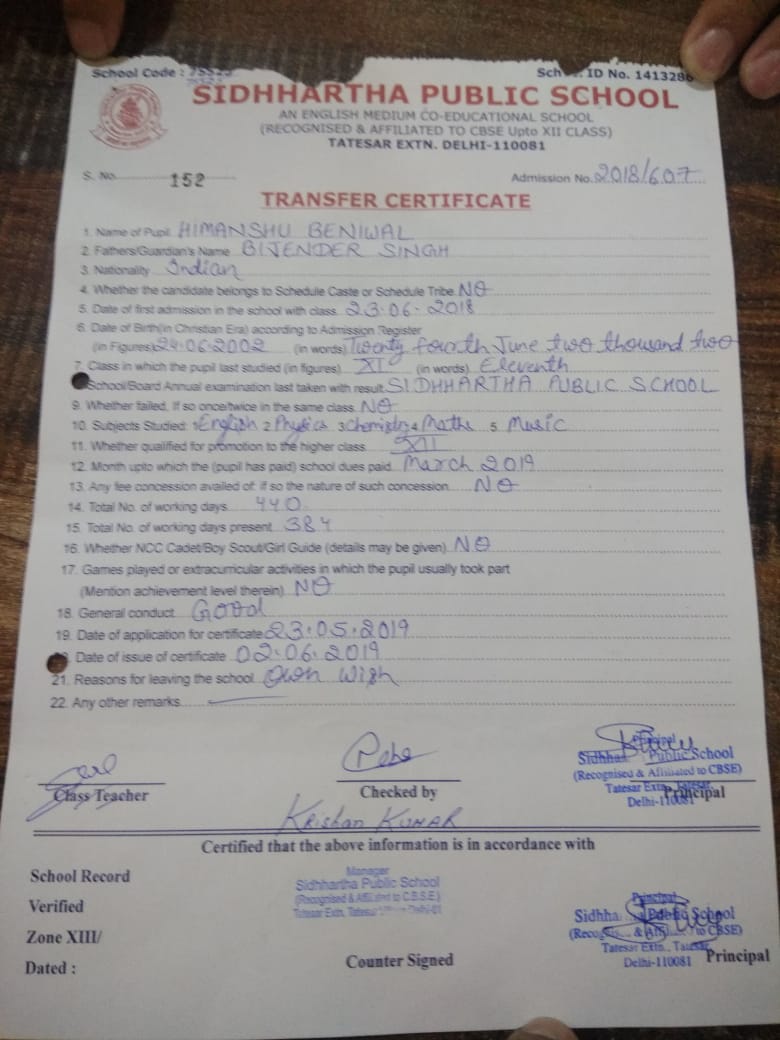 School Code :
ID No. 1413286
SIDHHARTHA PUBLIC SCHOOL
AN ENGLISH MEDIUM CO-EDUCATIONAL SCHOOL
(RECOGNISED & AFFILIATED TO CBSE Upto XII CLASS)
TATESAR EXTN. DELHI-110081
S. No. 152
Admission No. 2018/607
TRANSFER CERTIFICATE
1. Name of Pupil HIMANSHU BENIWAL
2. Fathers/Guardian's Name BIJENDER SINGH
3. Nationality Indian
4. Whether the candidate belongs to Schedule Caste or Schedule Tribe NO
5. Date of first admission in the school with class 23.06.2018
6. Date of Birth(in Christian Era) according to Admission Register
(in Figures) 24.06.2002 (in words) Twenty fourth June two thousand two
7. Class in which the pupil last studied (in figures) XI (in words) Eleventh
School/Board Annual examination last taken with result SIDHHARTHA PUBLIC SCHOOL
9. Whether failed, If so once/twice in the same class NO
10. Subjects Studied: 1 English 2 Physics 3 Chemistry 4 Maths 5. Music
11. Whether qualified for promotion to the higher class XII
12. Month upto which the (pupil has paid) school dues paid March 2019
13. Any fee concession availed of: if so the nature of such concession NO
14. Total No. of working days 440
15. Total No. of working days present 384
16. Whether NCC Cadet/Boy Scout/Girl Guide (details may be given) NO
17. Games played or extracurricular activities in which the pupil usually took part
(Mention achievement level therein) NO
18. General conduct Good
19. Date of application for certificate 23.05.2019
Date of issue of certificate 02.06.2019
21. Reasons for leaving the school Own Wish
22. Any other remarks
Principal
Public School
(Recognised & Affiliated to CBSE)
Tatesar Extn.
Delhi-110081
Class Teacher
Checked by
Principal
Krishan KUMAR
Certified that the above information is in accordance with
School Record
Verified
Zone XIII/
Dated :
Manager
Sidhhartha Public School
(Recognised & Affiliated to C.B.S.E.)
Tatesar Extn,
Counter Signed
Principal
Public School
to CBSE)
Tatesar Extn.,
Delhi-110081
Principal